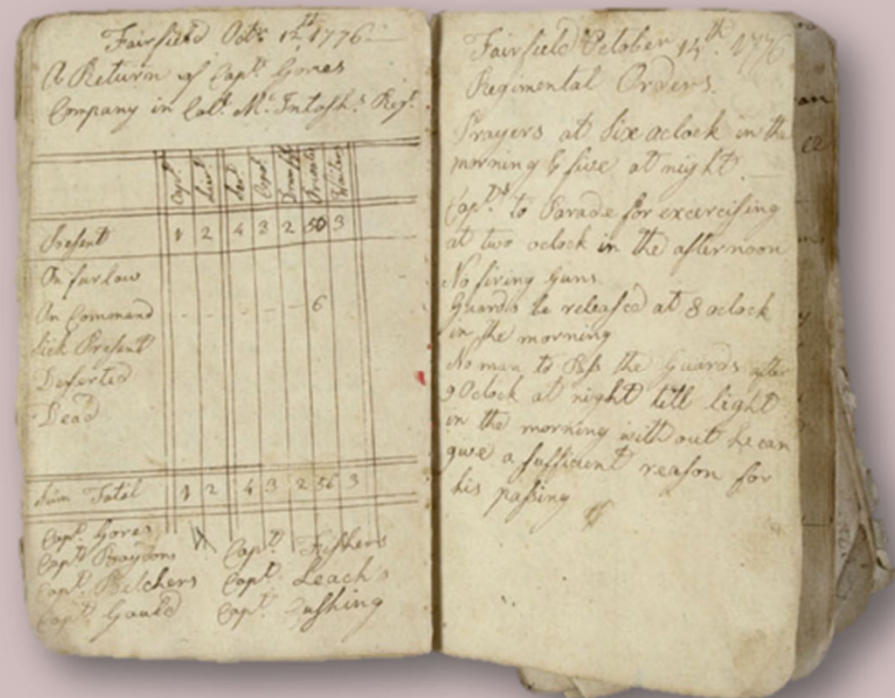 Fairfield Octr 12th 1776
A Return of Capt Gores
Company in Coll. Mc Intosh's Regt.
Capt Lieut Ser Corpl Drum Privates Waiters
Present 1 2 4 3 2 50 3
On furlow
On Command 6
Sick Present
Deserted
Dead
Sum Total 1 2 4 3 2 56 3
Capt. Gores
Capt.
Capt. Belchers
Capt. Gould
Capt. Fishers
Capt. Leach's
Capt. Cushing
Fairfield October 14th 1776
Regimental Orders.
Prayers at Six aclock in the
morning & five at night.
Capts to Parade for excercising
at two oclock in the afternoon
No firing Guns
Guards to be released at 8 aclock
in the morning
No man to Pass the Guards after
9 Oclock at night till light
in the morning without he can
give a sufficient reason for
his passing